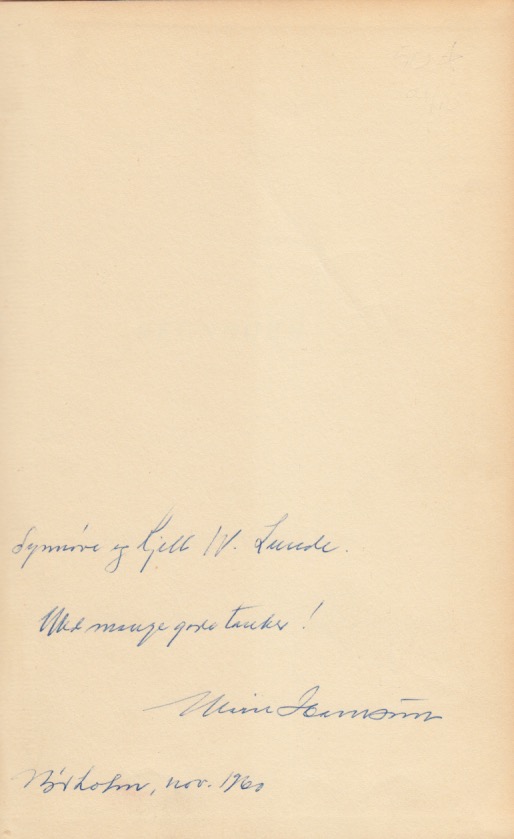 Synnøve og Kjell W. Lunde.
Med mange gode tanker!
Marie Hamsun
Nørholm, nov. 1960